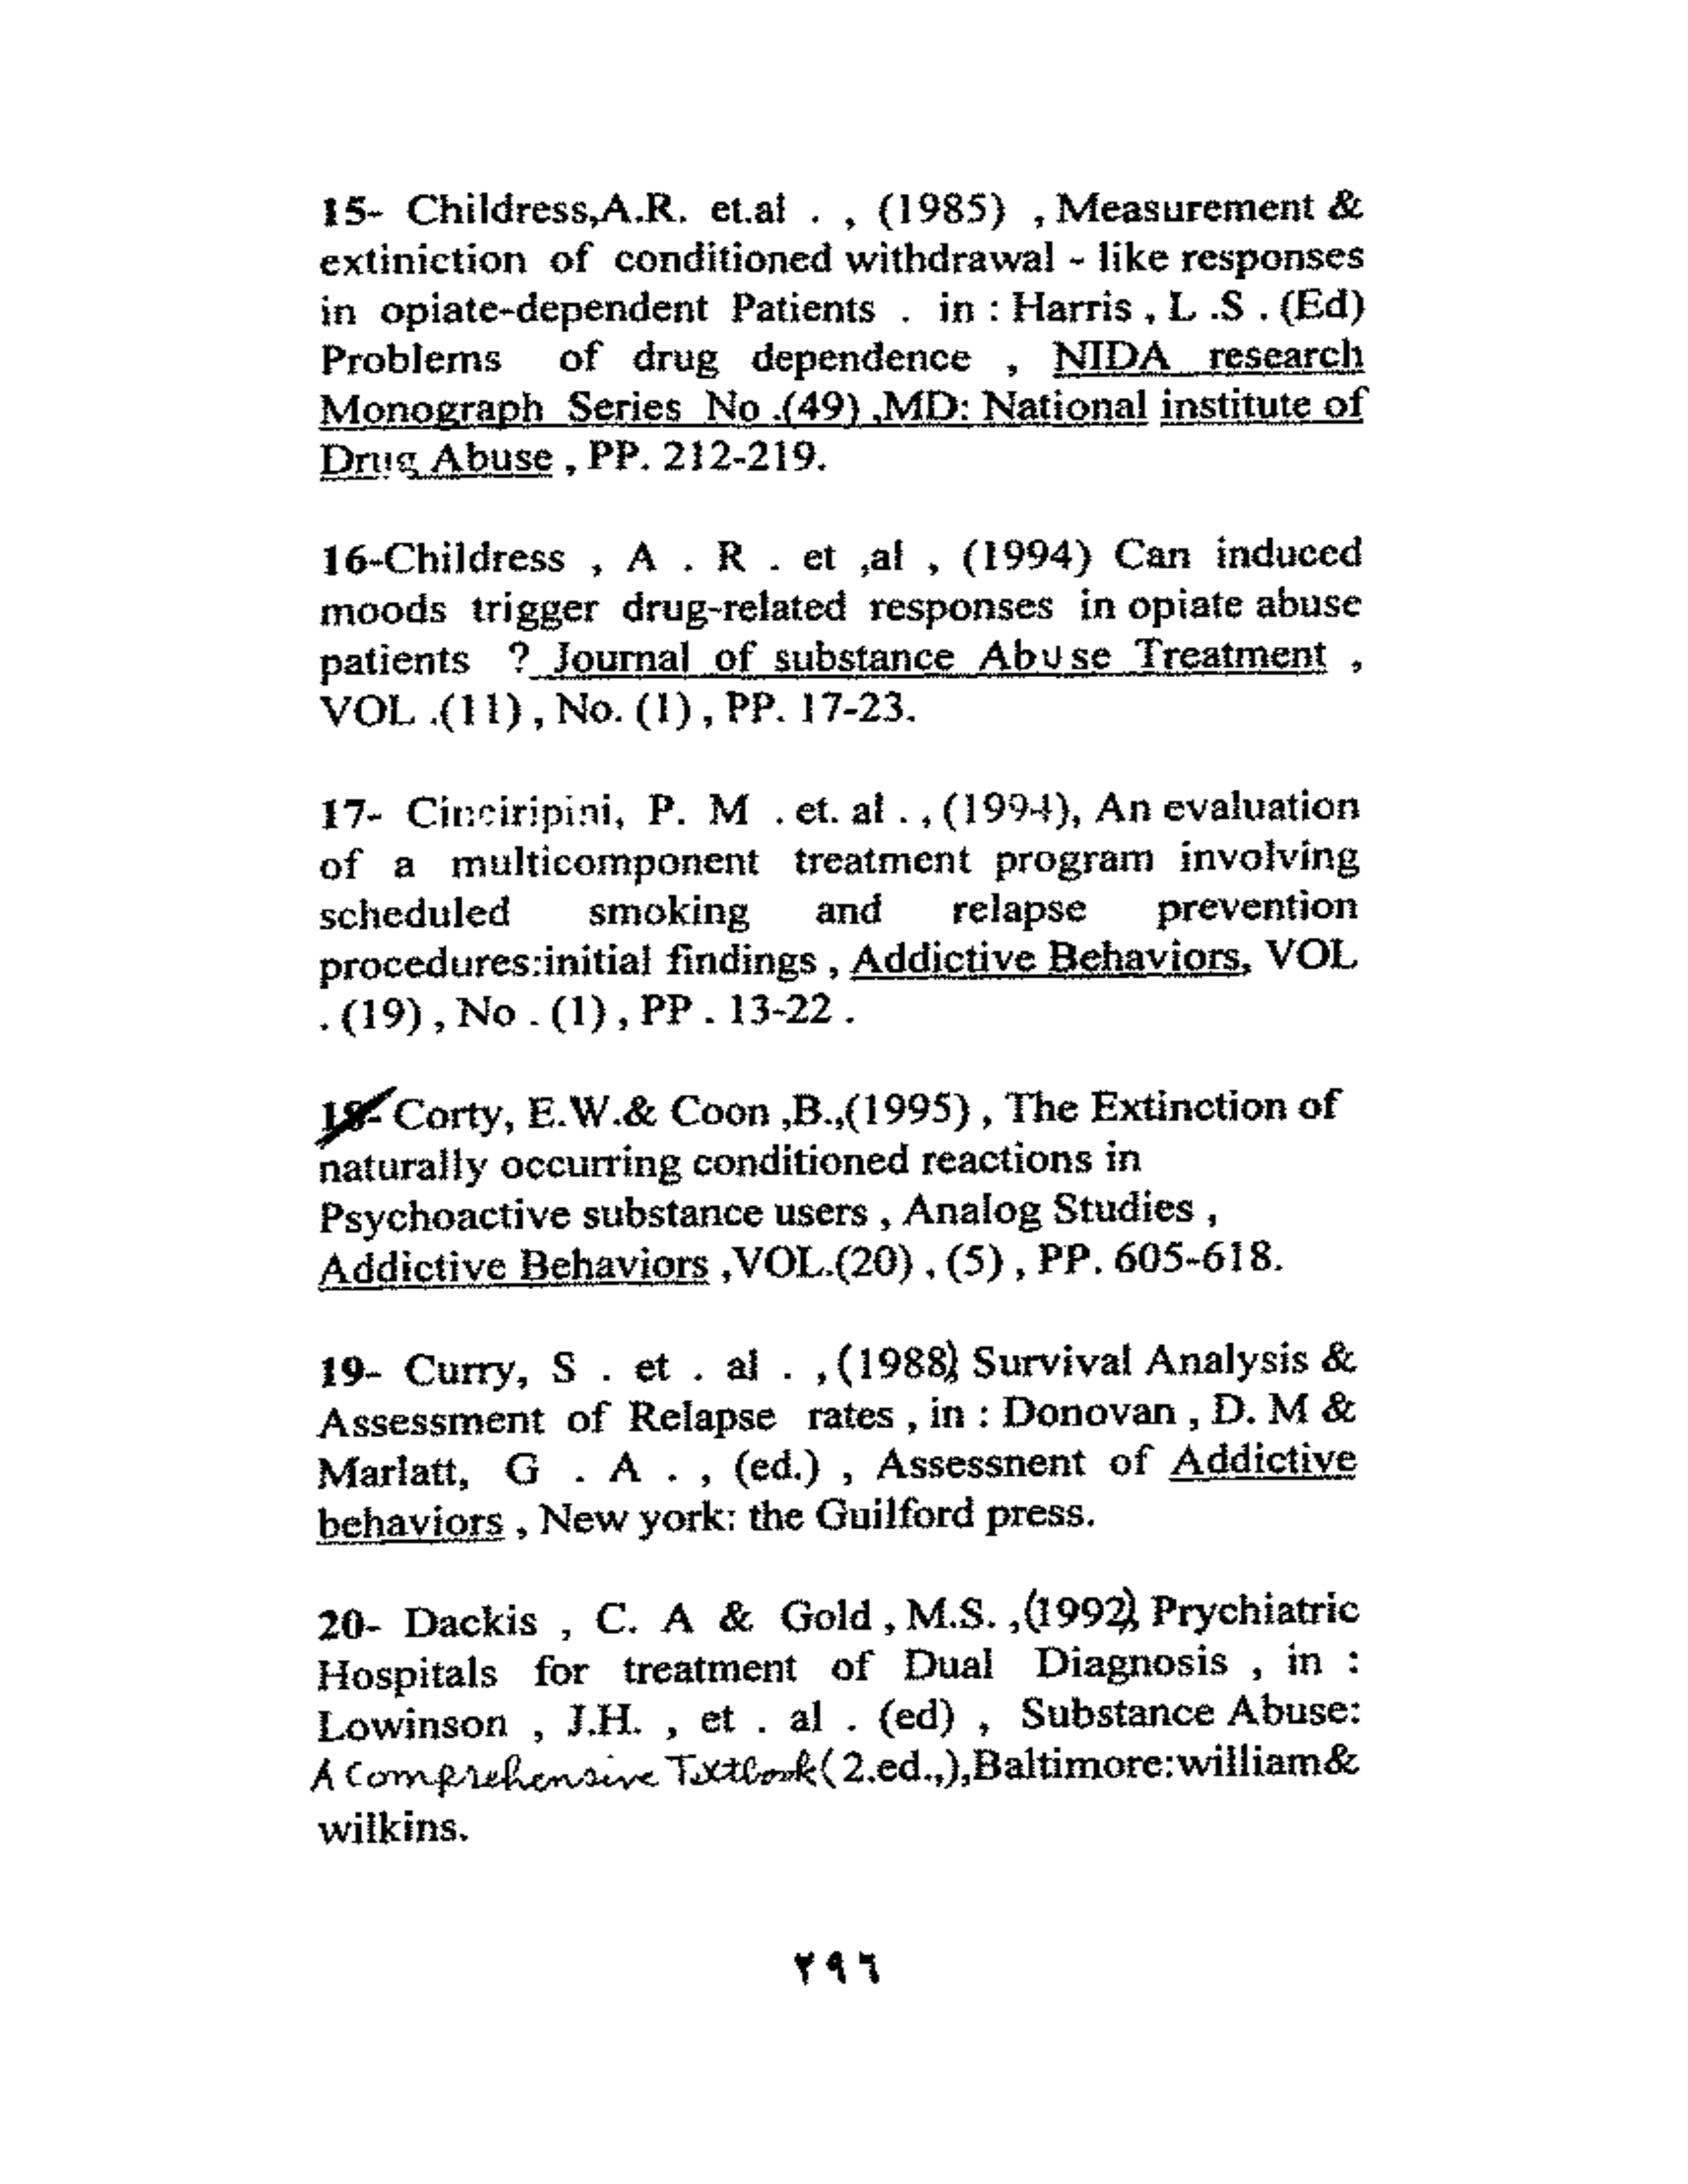 15- Childress,A.R. et.al . , (1985) , Measurement &
extiniction of conditioned withdrawal - like responses
in opiate-dependent Patients . in : Harris , L .S . (Ed)
Problems of drug dependence , NIDA research
Monograph Series No .(49) ,MD: National institute of
Drug Abuse , PP. 212-219.

16-Childress , A . R . et ,al , (1994) Can induced
moods trigger drug-related responses in opiate abuse
patients ? Journal of substance Abuse Treatment ,
VOL .(11) , No. (1) , PP. 17-23.

17- Cinciripini, P. M . et. al . , (1994), An evaluation
of a multicomponent treatment program involving
scheduled smoking and relapse prevention
procedures:initial findings , Addictive Behaviors, VOL
. (19) , No . (1) , PP . 13-22 .

18- Corty, E.W.& Coon ,B.,(1995) , The Extinction of
naturally occurring conditioned reactions in
Psychoactive substance users , Analog Studies ,
Addictive Behaviors ,VOL.(20) , (5) , PP. 605-618.

19- Curry, S . et . al . , (1988), Survival Analysis &
Assessment of Relapse rates , in : Donovan , D. M &
Marlatt, G . A . , (ed.) , Assessnent of Addictive
behaviors , New york: the Guilford press.

20- Dackis , C. A & Gold , M.S. ,(1992), Prychiatric
Hospitals for treatment of Dual Diagnosis , in :
Lowinson , J.H. , et . al . (ed) , Substance Abuse:
A Comprehensive Textbook (2.ed.,),Baltimore:william&
wilkins.

٢٩٦